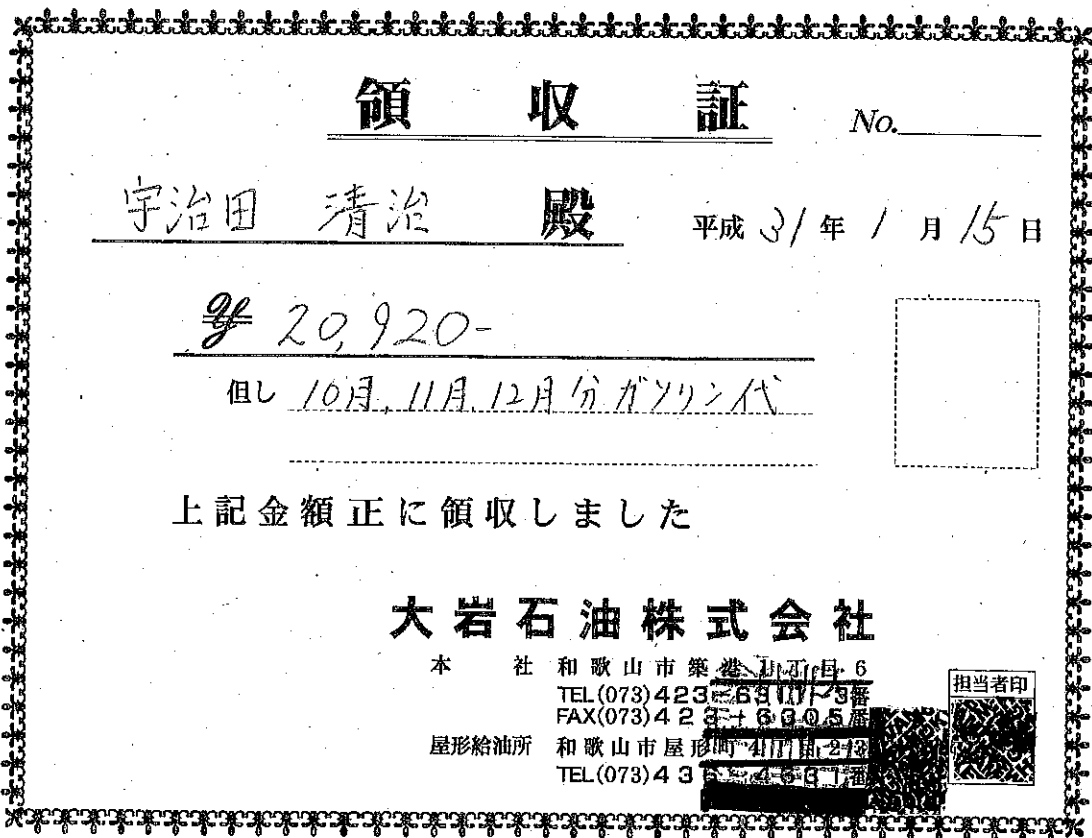 領収証 No.
宇治田 清治 殿 平成31年1月15日
¥ 20,920-
但し 10月,11月,12月分ガソリン代
上記金額正に領収しました
大岩石油株式会社
本社 和歌山市築港1丁目6
TEL(073)423-6301~3番
FAX(073)423-6305番
屋形給油所 和歌山市屋形町4丁目23
TEL(073)436-4631番
担当者印